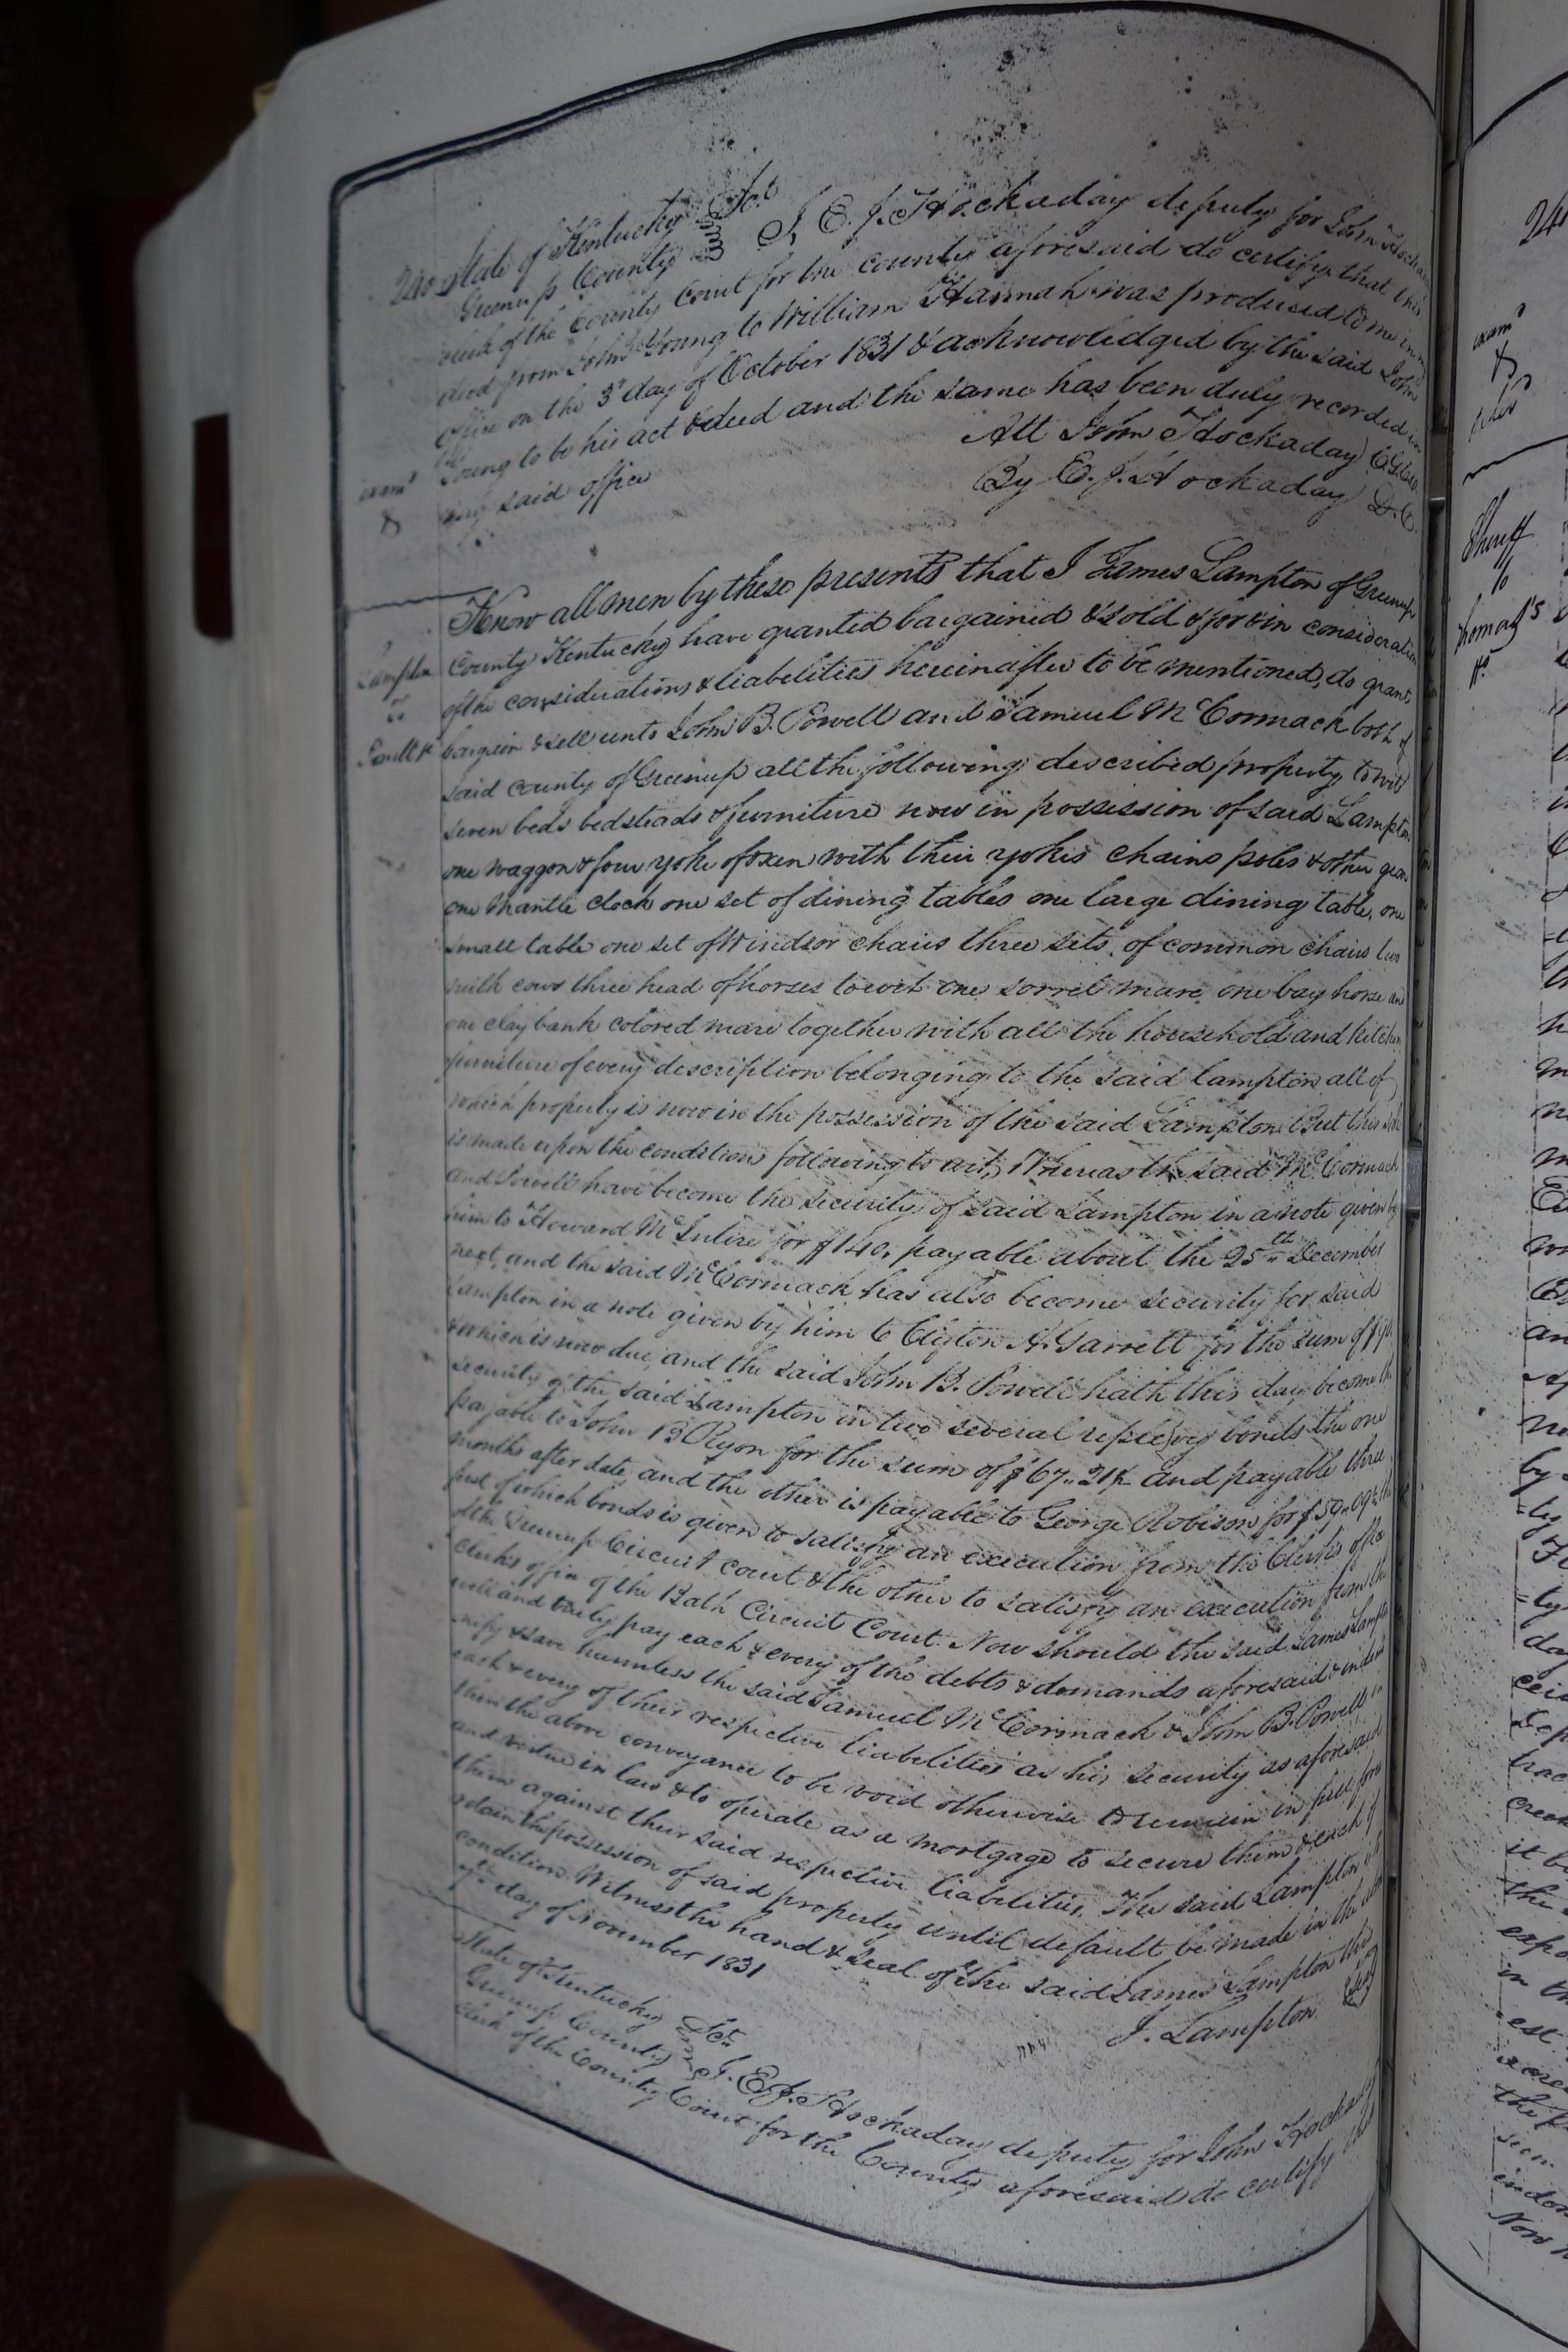 240 State of Kentucky
Greenup County Sct
I, E. J. Hockaday deputy for John Hockaday
clerk of the County Court for the county aforesaid do certify that this
deed from John Young to William Hannah was produced to me in my
office on the 3d day of October 1831 & acknowledged by the said John
Young to be his act & deed and the same has been duly recorded in
my said office
Att John Hockaday
By E. J. Hockaday D.C.
exam'd
&
Lampton
to
Powell &c
Know all men by these presents that I James Lampton of Greenup
County Kentucky have granted bargained & sold & for & in consideration
of the considerations & liabilities hereinafter to be mentioned, do grant
bargain & sell unto John B. Powell and Samuel McCormack both of
said county of Greenup all the following described property towit
seven beds bedsteads & furniture now in possession of said Lampton
one waggon & four yoke of oxen with their yokes chains poles & other gear
one mantle clock one set of dining tables one large dining table, one
small table one set of Windsor chairs three sets of common chairs two
milk cows three head of horses towit one sorrel mare one bay horse and
one clay bank colored mare together with all the household and kitchen
furniture of every description belonging to the said lampton all of
which property is now in the possession of the said Lampton. But this sale
is made upon the condition following to wit, Whereas the said McCormack
and Powell have become the security of said Lampton in a note given by
him to Howard McIntire for $140, payable about the 25th December
next, and the said McCormack has also become security for said
Lampton in a note given by him to A. Garrett for the sum of
& which is now due, and the said John B. Powell hath this day become the
security of the said Lampton in two several replevy bonds the one
payable to John B for the sum of $67.21½ and payable three
months after date, and the other is payable to George Robison for $59.09½ the
first of which bonds is given to satisfy an execution from the Clerks office
of the Greenup Circuit court & the other to satisfy an execution from the
Clerks office of the Bath Circuit Court. Now should the said James Lampton
well and truly pay each & every of the debts & demands aforesaid & indem
nify & save harmless the said Samuel McCormack & John B. Powell in
each & every of their respective liabilities as his security as aforesaid
then the above conveyance to be void otherwise to remain in full force
and virtue in law & to operate as a mortgage to secure them & each of
them against their said respective liabilities. The said Lampton is to
retain the possession of said property until default be made in the above
condition. Witness the hand & seal of the said James Lampton this
7th day of November 1831
J. Lampton
State of Kentucky
Greenup County Sct
I, E. J. Hockaday deputy for John Hockaday
clerk of the County Court for the County aforesaid do certify this
24
exam'd
&
Sheriff
to